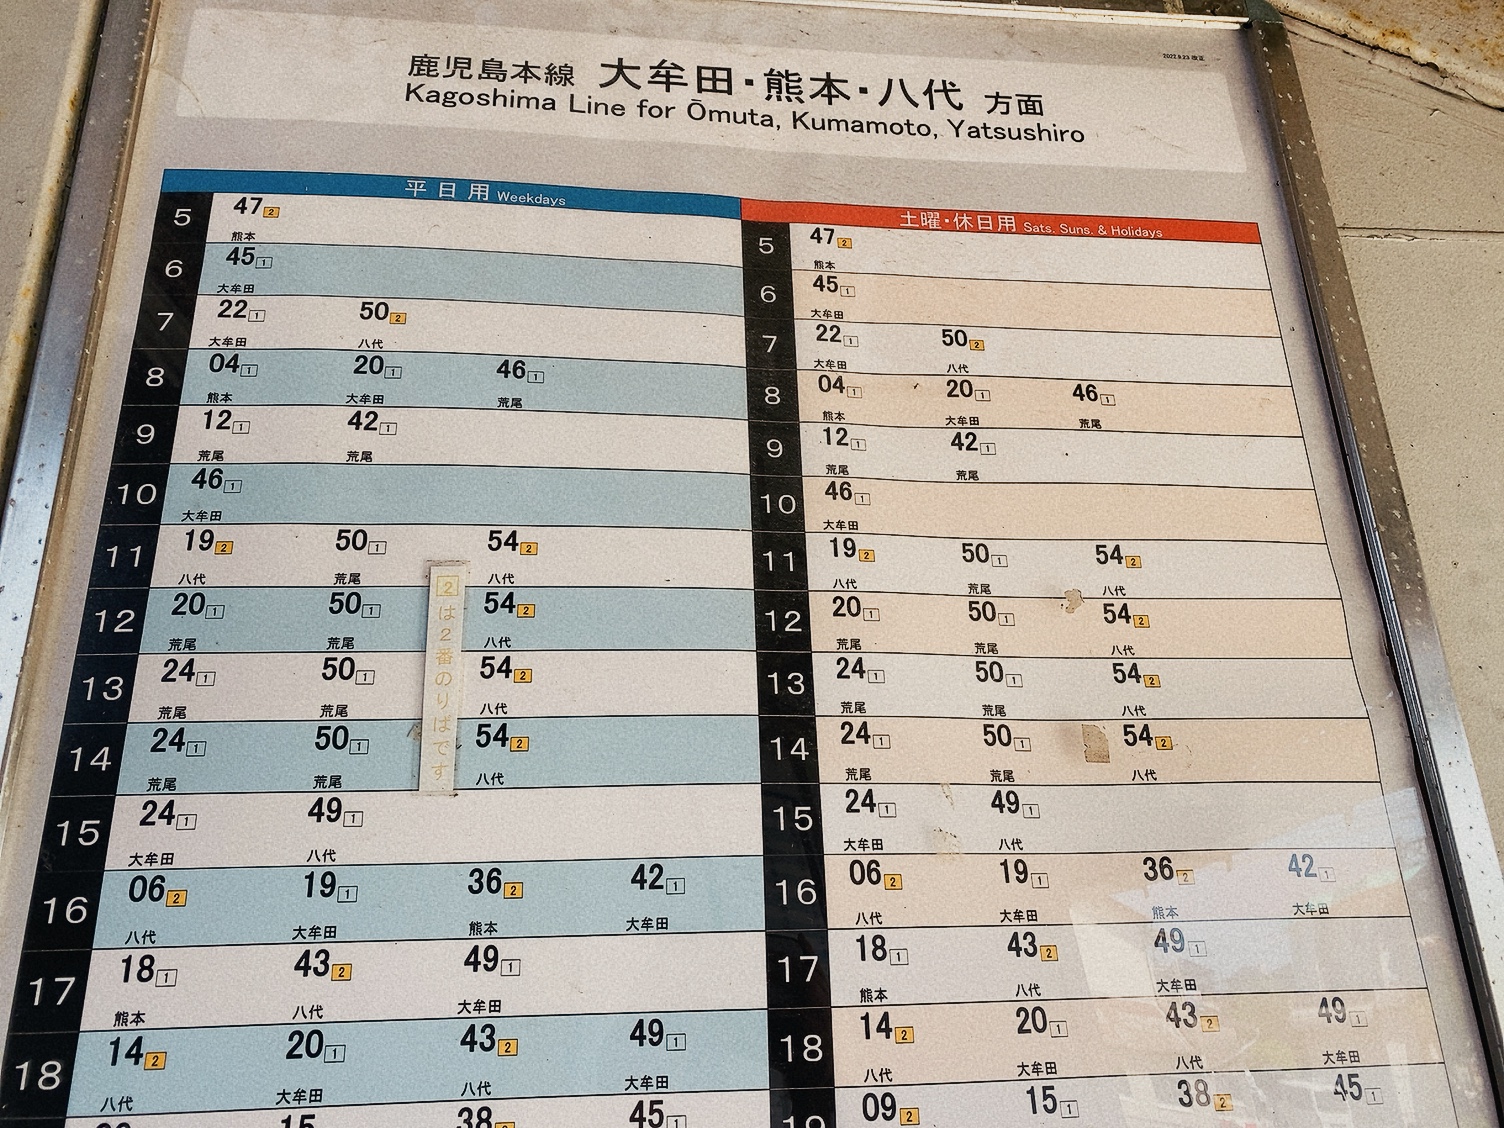 2022.9.23 改正
鹿児島本線 大牟田・熊本・八代 方面
Kagoshima Line for Ōmuta, Kumamoto, Yatsushiro
平日用 Weekdays
5 47 2
熊本
6 45 1
大牟田
7 22 1 50 2
大牟田 八代
8 04 1 20 1 46 1
熊本 大牟田 荒尾
9 12 1 42 1
荒尾 荒尾
10 46 1
大牟田
11 19 2 50 1 54 2
八代 荒尾 八代
12 20 1 50 1 54 2
荒尾 荒尾 八代
13 24 1 50 1 54 2
荒尾 荒尾 八代
14 24 1 50 1 54 2
荒尾 荒尾 八代
15 24 1 49 1
大牟田 八代
16 06 2 19 1 36 2 42 1
八代 大牟田 熊本 大牟田
17 18 1 43 2 49 1
熊本 八代 大牟田
18 14 2 20 1 43 2 49 1
八代 大牟田 八代 大牟田
15 38 2 45 1
2は2番のりばです
土曜・休日用 Sats. Suns. & Holidays
5 47 2
熊本
6 45 1
大牟田
7 22 1 50 2
大牟田 八代
8 04 1 20 1 46 1
熊本 大牟田 荒尾
9 12 1 42 1
荒尾 荒尾
10 46 1
大牟田
11 19 2 50 1 54 2
八代 荒尾 八代
12 20 1 50 1 54 2
荒尾 荒尾 八代
13 24 1 50 1 54 2
荒尾 荒尾 八代
14 24 1 50 1 54 2
荒尾 荒尾 八代
15 24 1 49 1
大牟田 八代
16 06 2 19 1 36 2 42 1
八代 大牟田 熊本 大牟田
17 18 1 43 2 49 1
熊本 八代 大牟田
18 14 2 20 1 43 2 49 1
八代 大牟田 八代 大牟田
19 09 2 15 1 38 2 45 1